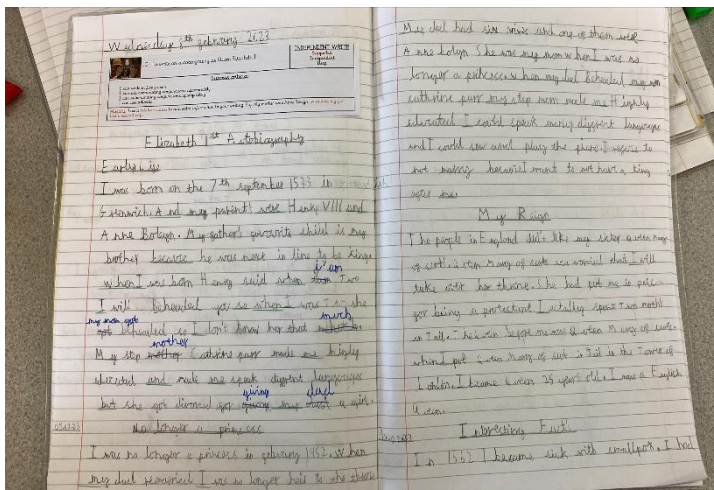 Wednesday 8th february 2023
INDEPENDENT WRITE
Supported
Independent
Success criteria:
Elizabeth 1st Autobiography
Early life
I was born on the 7th september 1533 in
Greenwich. And my parent's were Henry VIII and
Anne Boleyn. My father's favourite child is my
brother because he was next in line to be kinge
when I was born Henry said when I'am two
I will behealed you so when I was Two she
my mom got behealed so I don't know her that much
My step mother Cathrine parr made me highly
educated and made me speak diggrent languages
but she got divorced gor giving my dad a girl.
No longer a princess
I was no longer a princess in february 1952. When
my dad remarried I was no longer heir to the throne
My dad had six wives and one of them were
Anne boleyn She was my mom when I was no
longer a princess. when my dad behealed my mom
cathrine parr my step mom made me Highly
educated I could speak many diggrent languages
and I could sew and play the piano. I
not marry because I want to not have a king
My Reign
The people in England did't like my sister Queen Mary
of scots Queen Mary of scots was worried that I will
take over her throne. She had put me in
gor being a protestant I actully spent Two moths
in Jail. The Queen begore me was Queen Mary of scots.
when I put Queen Mary of scots in Jail in the Tower of
London. I became Queen 25 years old. I was a English
Queen.
Intresting Fact's
In 1562 I became sick with smallpox. I had